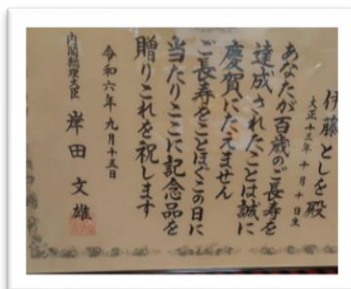 伊藤としを殿
大正十三年十月十日生
あなたが百歳のご長寿を
達成されたことは誠に
慶賀にたえません
ご長寿をことほぐこの日に
当たりここに記念品を
贈りこれを祝します
令和六年九月十五日
内閣総理大臣 岸田文雄